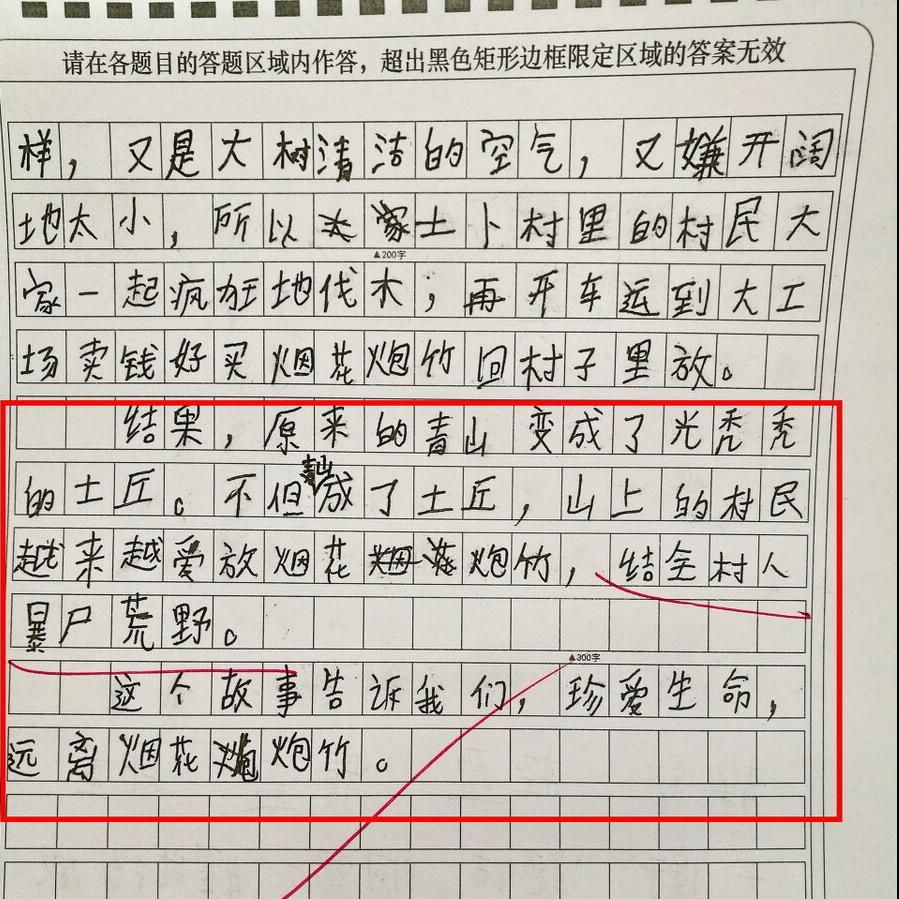 请在各题目的答题区域内作答，超出黑色矩形边框限定区域的答案无效
样，又是大树清洁的空气，又嫌开阔
地太小，所以土卜村里的村民大
▲200字
家一起疯狂地伐木；再开车远到大工
场卖钱好买烟花炮竹回村子里放。
结果，原来的青山变成了光秃秃
的土丘。不但青山成了土丘，山上的村民
越来越爱放烟花炮竹，结全村人
暴尸荒野。
▲300字
这个故事告诉我们，珍爱生命，
远离烟花炮竹。